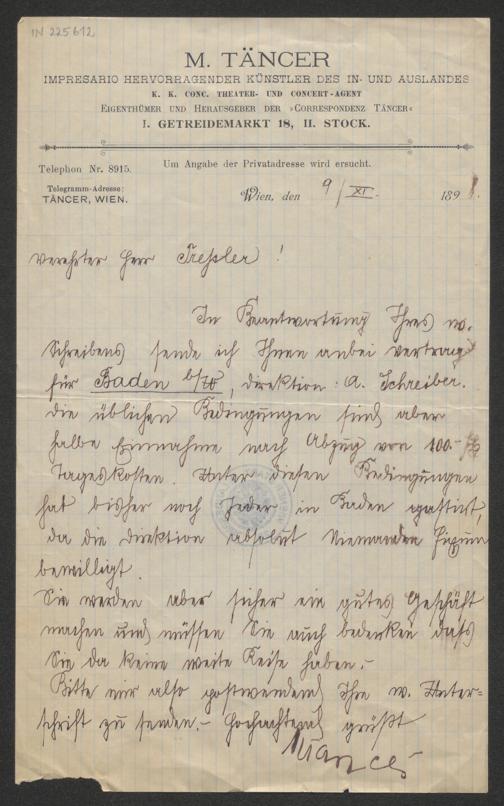 IN 225612
M. TÄNCER
IMPRESARIO HERVORRAGENDER KÜNSTLER DES IN- UND AUSLANDES
K. K. CONC. THEATER- UND CONCERT-AGENT
EIGENTHÜMER UND HERAUSGEBER DER »CORRESPONDENZ TÄNCER«
I. GETREIDEMARKT 18, II. STOCK.
Um Angabe der Privatadresse wird ersucht.
Telephon Nr. 8915.
Telegramm-Adresse:
TÄNCER, WIEN.
Wien, den 9/XI. 189
Verehrter Herr Treßler!
In Beantwortung Ihres w.
Schreibens sende ich Ihnen anbei Vertrag
für Baden b/W, Direktion: A. Schreiber.
Die üblichen Bedingungen sind aber
halbe Einnahme nach Abzug von 100.-
Tageskosten. Unter diesen Bedingungen
hat bisher noch Jeder in Baden gastirt,
da die Direktion absolut Niemanden Fixum
bewilligt.
Sie werden aber sicher ein gutes Geschäft
machen und müssen Sie auch bedenken daß
Sie da keine weite Reise haben.-
Bitte mir also postwendend Ihre w. Unter=
schrift zu senden.- Hochachtend grüßt
Täncer